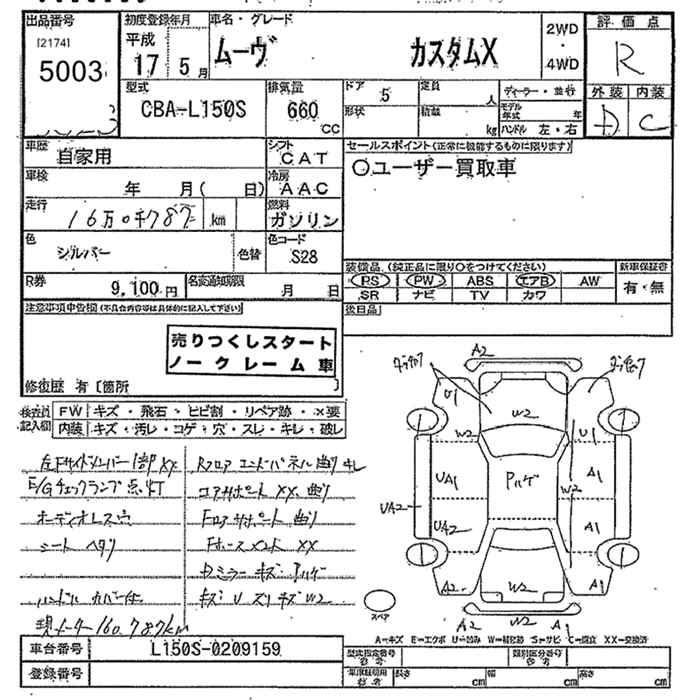 出品番号
[2174]
5003
初度登録年月
平成
17 5月
車名・グレード
ムーヴ カスタムX
2WD
・
4WD
評価点
R
型式
CBA-L150S
排気量
660
CC
ドア
5
定員
人
形状
積載
kg
ディーラー・並行
モデル年式 年
ハンドル 左・右
外装 内装
D C
車歴
自家用
シフト
CAT
車検
年 月( 日)
冷房
AAC
走行
16万0千787 km
燃料
ガソリン
色
シルバー
色替
色コード
S28
R券
9,100円
名変通知期限
月 日
セールスポイント(正常に機能するものに限ります)
〇ユーザー買取車
装備品 (純正品に限り〇をつけてください)
PS PW ABS エアB AW
SR ナビ TV カワ
新車保証書
有・無
後日品
注意事項申告欄(不具合内容等は具体的に記入して下さい)
売りつくしスタート
ノークレーム車
修復歴 有〔箇所 〕
検査員記入欄
FW キズ・飛石・ヒビ割・リペア跡・×要
内装 キズ・汚レ・コゲ・穴・スレ・キレ・破レ
左Fサイドメンバー1部XX
E/Gチェックランプ点灯
オーディオレス穴
シート ヘタリ
ハンドル カバー付
現メーター160,787km
Rフロア エンドパネル曲り キレ
コアサポートXX、曲り
Fロアサポート 曲り
Fホースメント XX
Dミラー キズ ハゲ
キズ U スリキズ W2
A2
U1
W2
W2
U1
UA1
Pハゲ
W2
A1
UA2
UA2
A1
A2
W2
A1
A2
W2
A1
スペア
A=キズ E=エクボ U=凹み W=補修跡 S=サビ C=腐食 XX=交換済
車台番号
L150S-0209159
登録番号
型式指定番号
参考
類別区分番号
参考
車庫証明用
参考
長さ cm
幅 cm
高さ cm